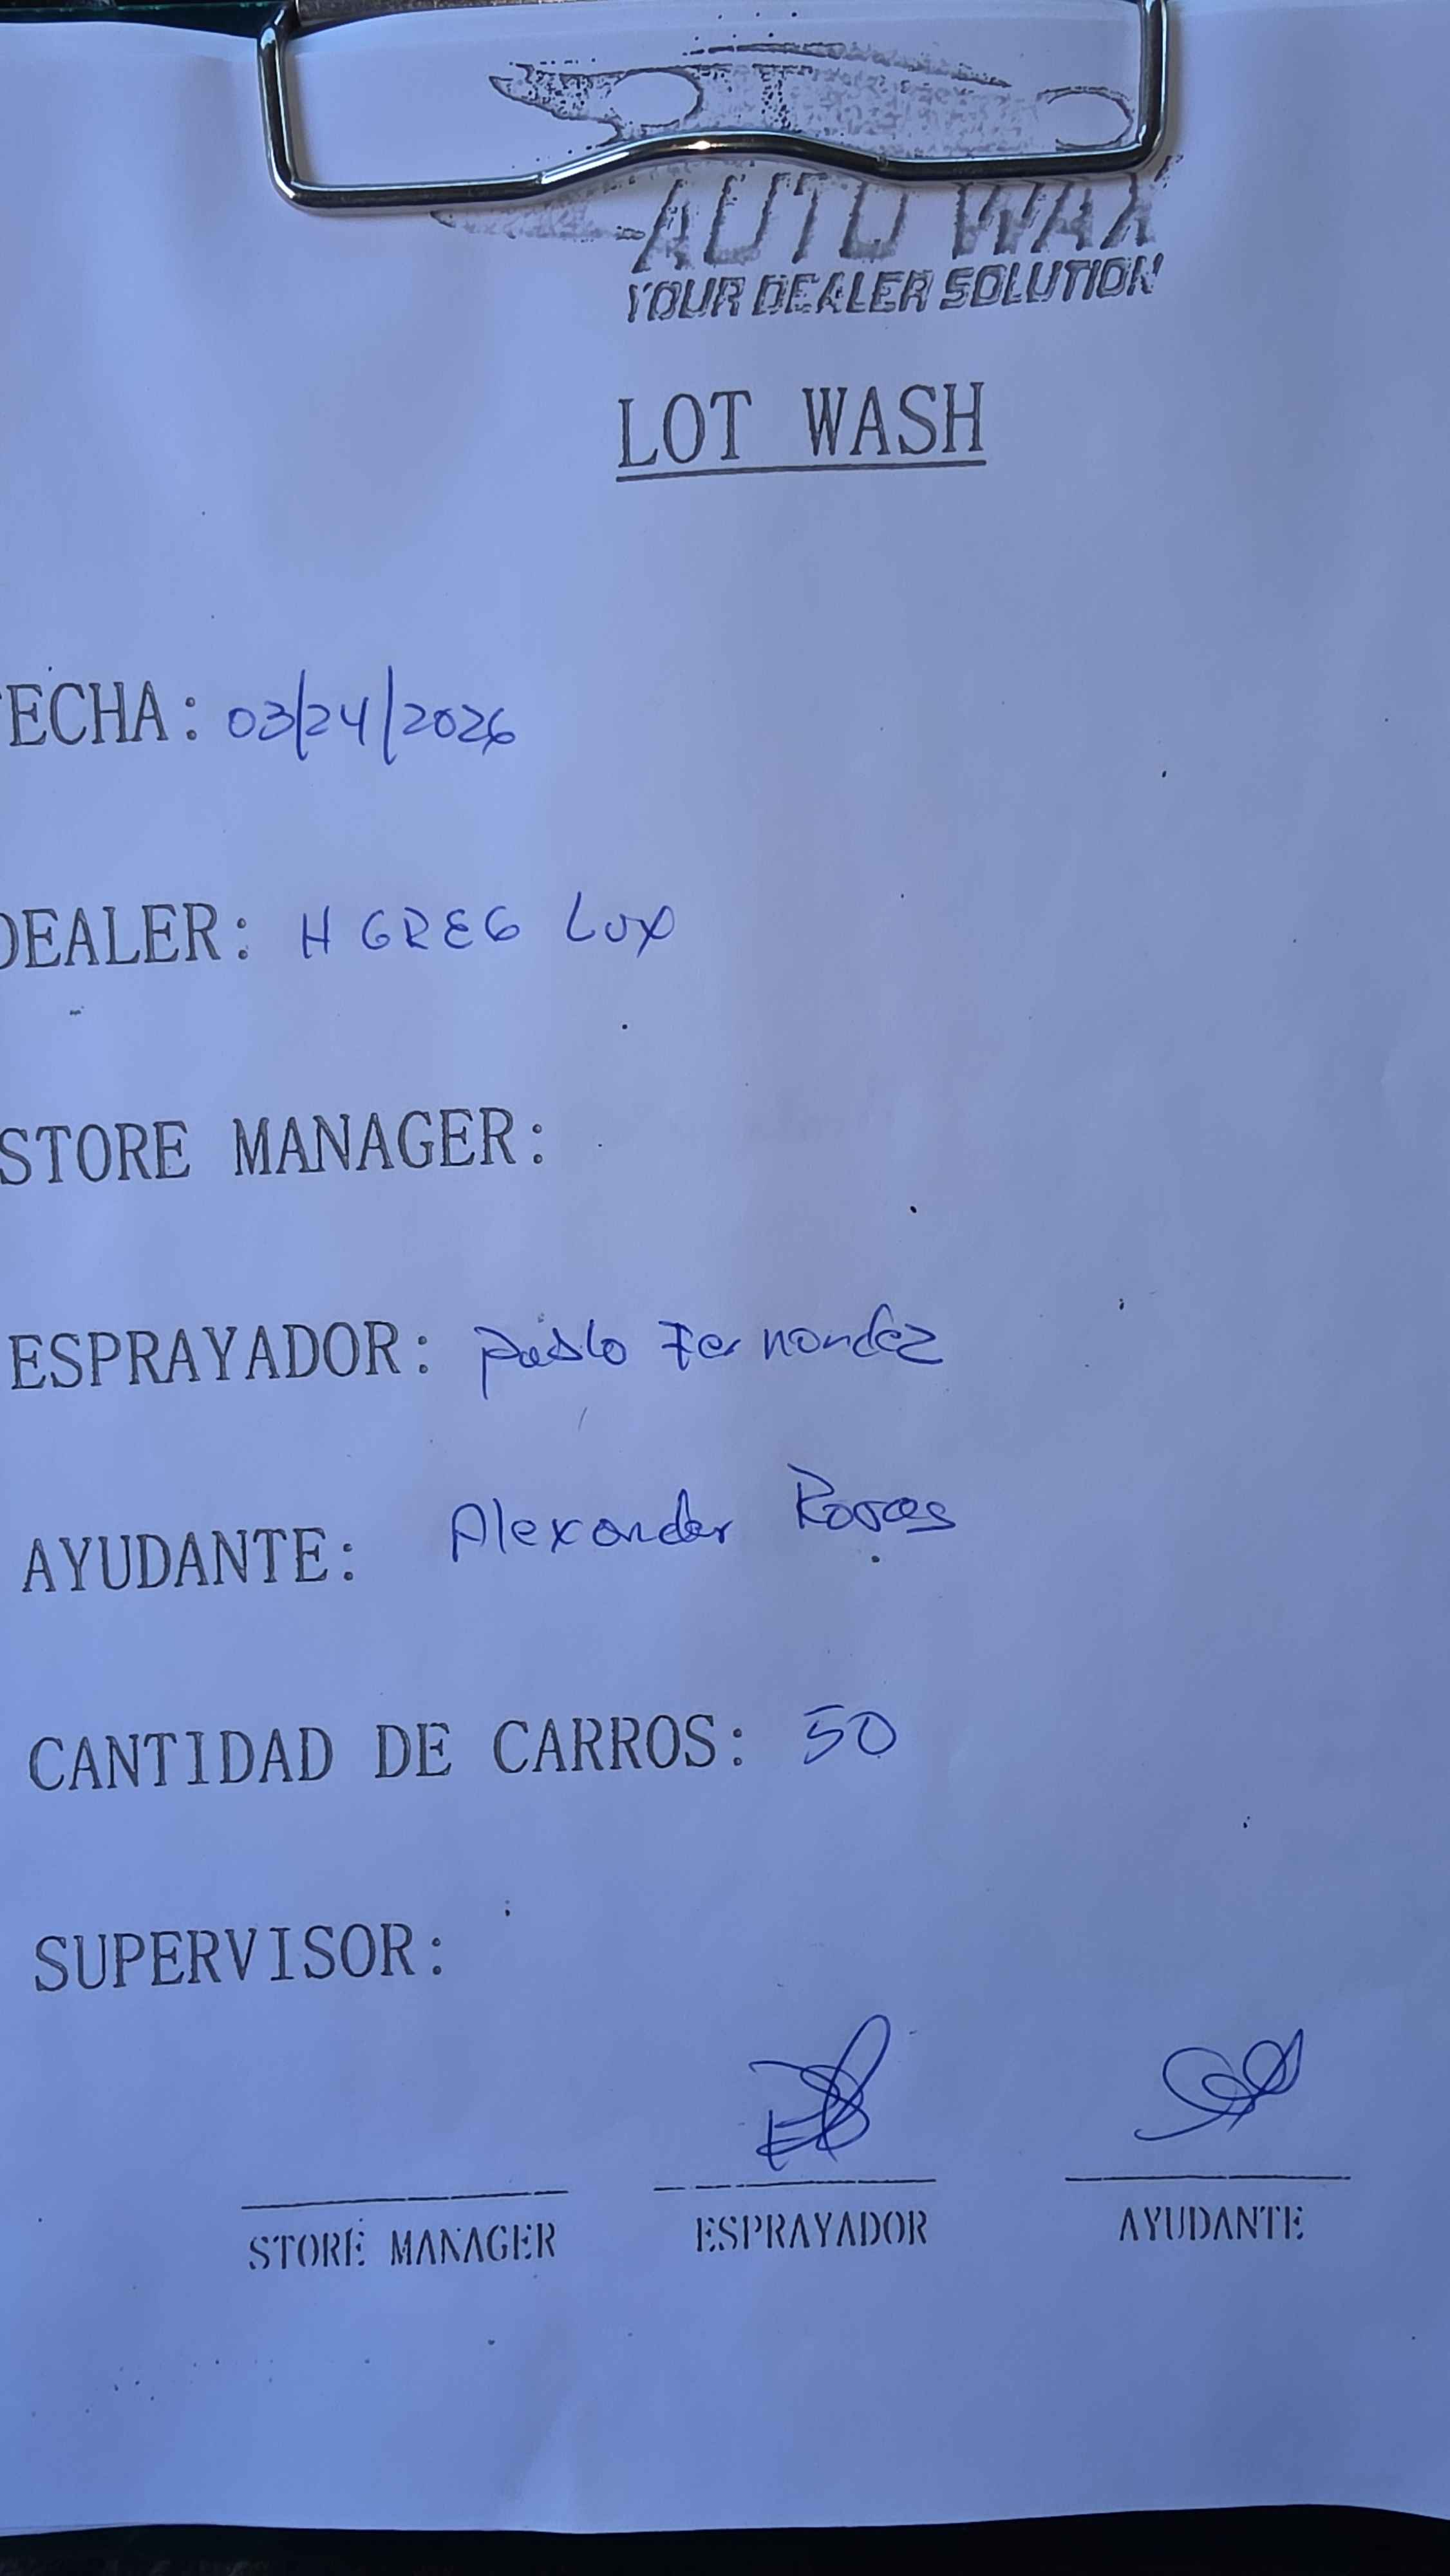 AUTO WAX
YOUR DEALER SOLUTION
LOT WASH
FECHA: 03/24/2026
DEALER: H GREG LUX
STORE MANAGER:
ESPRAYADOR: Pablo Fernandez
AYUDANTE: Alexander Rojas
CANTIDAD DE CARROS: 50
SUPERVISOR:
STORE MANAGER ESPRAYADOR AYUDANTE